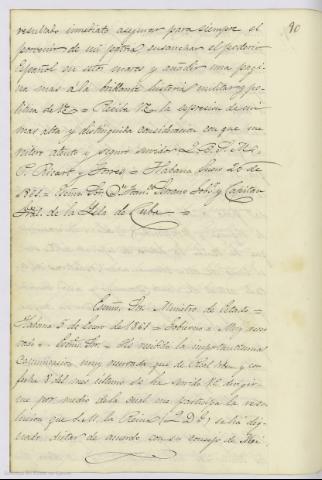 90
resultado inmediato asegurar para siempre el
porvenir de mi patria ensanchar el poderio
Español en estos mares y añadir una pagi-
na mas a la brillante historia militar y po-
litica de VE = Reciba VE la espresion de mi
mas alta y distinguida consideracion con que me
reitero atento y seguro servidor Q. B. S. M. =
P. Ricart y Torres = Habana Enero 26 de
1861 = Escmo Sor Dn Franco Serrano Gobor y Capitan
Gral. de la Isla de Cuba =
Escmo. Sor Ministro de Estado =
Habana 5 de Enero de 1861 = Gobierno = Muy reser-
vado = Escmo. Sor = He recibido la importantisima
Comunicacion muy reservada que de Real orden y con
fecha 8 del mes ultimo se ha servido VE dirigir
me por medio de la cual me participa la reso-
lucion que S.M. la Reina (Q. D. G.) se ha dig-
nado dictar de acuerdo con su consejo de Mi-